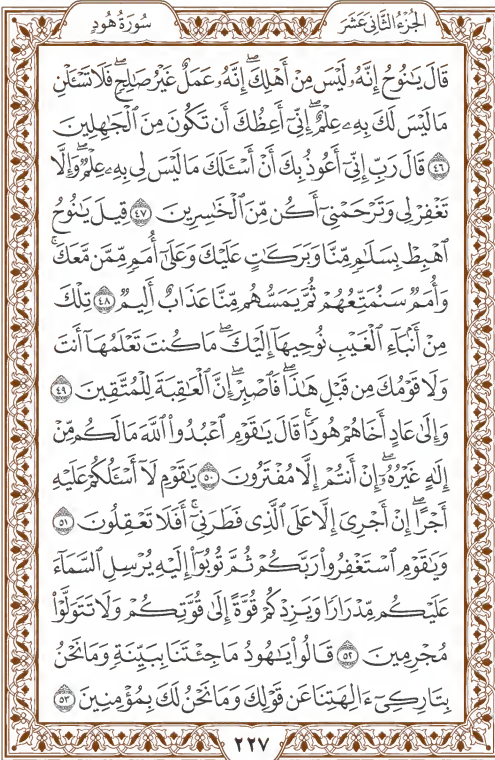 سُورَةُ هُودٍ
الجُزْءُ الثَّانِي عَشَرَ
قَالَ يَٰنُوحُ إِنَّهُۥ لَيْسَ مِنْ أَهْلِكَۖ إِنَّهُۥ عَمَلٌ غَيْرُ صَٰلِحٖۖ فَلَا تَسْـَٔلْنِ
مَا لَيْسَ لَكَ بِهِۦ عِلْمٌۖ إِنِّيٓ أَعِظُكَ أَن تَكُونَ مِنَ ٱلْجَٰهِلِينَ
٤٦ قَالَ رَبِّ إِنِّيٓ أَعُوذُ بِكَ أَنْ أَسْـَٔلَكَ مَا لَيْسَ لِي بِهِۦ عِلْمٌۖ وَإِلَّا
تَغْفِرْ لِي وَتَرْحَمْنِيٓ أَكُن مِّنَ ٱلْخَٰسِرِينَ ٤٧ قِيلَ يَٰنُوحُ
ٱهْبِطْ بِسَلَٰمٖ مِّنَّا وَبَرَكَٰتٍ عَلَيْكَ وَعَلَىٰٓ أُمَمٖ مِّمَّن مَّعَكَۚ
وَأُمَمٌ سَنُمَتِّعُهُمْ ثُمَّ يَمَسُّهُم مِّنَّا عَذَابٌ أَلِيمٌ ٤٨ تِلْكَ
مِنْ أَنۢبَآءِ ٱلْغَيْبِ نُوحِيهَآ إِلَيْكَۖ مَا كُنتَ تَعْلَمُهَآ أَنتَ
وَلَا قَوْمُكَ مِن قَبْلِ هَٰذَاۖ فَٱصْبِرْۖ إِنَّ ٱلْعَٰقِبَةَ لِلْمُتَّقِينَ ٤٩
وَإِلَىٰ عَادٍ أَخَاهُمْ هُودٗاۚ قَالَ يَٰقَوْمِ ٱعْبُدُوا۟ ٱللَّهَ مَا لَكُم مِّنْ
إِلَٰهٍ غَيْرُهُۥٓۖ إِنْ أَنتُمْ إِلَّا مُفْتَرُونَ ٥٠ يَٰقَوْمِ لَآ أَسْـَٔلُكُمْ عَلَيْهِ
أَجْرًاۖ إِنْ أَجْرِيَ إِلَّا عَلَى ٱلَّذِي فَطَرَنِيٓۚ أَفَلَا تَعْقِلُونَ ٥١
وَيَٰقَوْمِ ٱسْتَغْفِرُوا۟ رَبَّكُمْ ثُمَّ تُوبُوٓا۟ إِلَيْهِ يُرْسِلِ ٱلسَّمَآءَ
عَلَيْكُم مِّدْرَارٗا وَيَزِدْكُمْ قُوَّةً إِلَىٰ قُوَّتِكُمْ وَلَا تَتَوَلَّوْا۟
مُجْرِمِينَ ٥٢ قَالُوا۟ يَٰهُودُ مَا جِئْتَنَا بِبَيِّنَةٖ وَمَا نَحْنُ
بِتَارِكِيٓ ءَالِهَتِنَا عَن قَوْلِكَ وَمَا نَحْنُ لَكَ بِمُؤْمِنِينَ ٥٣
٢٢٧